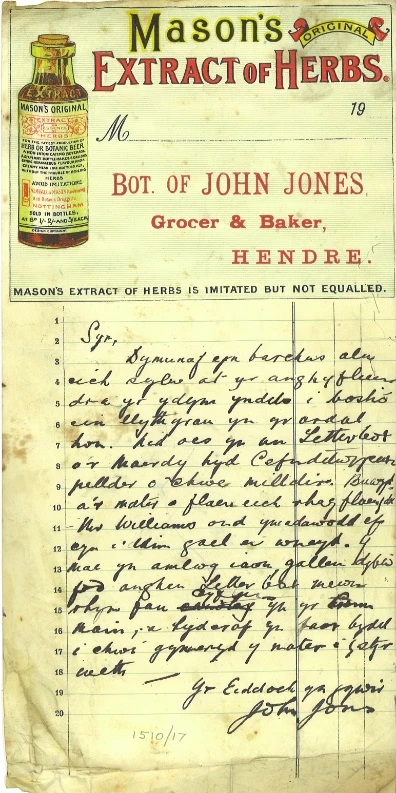 Mason's
ORIGINAL
EXTRACT OF HERBS.
EXTRACT
MASON'S ORIGINAL
EXTRACT
HERBS
HERB OR BOTANIC BEER
AVOID IMITATIONS
NOTTINGHAM
SOLD IN BOTTLES,
19
M
BOT. OF JOHN JONES,
Grocer & Baker,
HENDRE.
MASON'S EXTRACT OF HERBS IS IMITATED BUT NOT EQUALLED.
1
2 Syr,
3 Dymunaf yn barchus alw
4 eich sylw at yr anghyfleus
5 dra yr ydym ynddo i bostio
6 ein llythyrau yn yr ardal
7 hon. Nid oes yn un Letterbox
8 o'r Maerdy hyd Cefnddwysarn
9 pellder o chwe milldire.
10 a'r mater o flaen eich rhagflaenydd
11 Mr Williams ond ymadawodd ef
12 cyn i ddim gael ei wneyd. Y
13 mae yn amlwg iawn, gallwn
14 fod angen Letter box mewn
15 rhyw fan yn yr
16 main, a hyderaf yn fawr bydd
17 i chwi gymeryd y mater i
18
19 Yr Eiddoch yn gywir
20 John Jones
1510/17